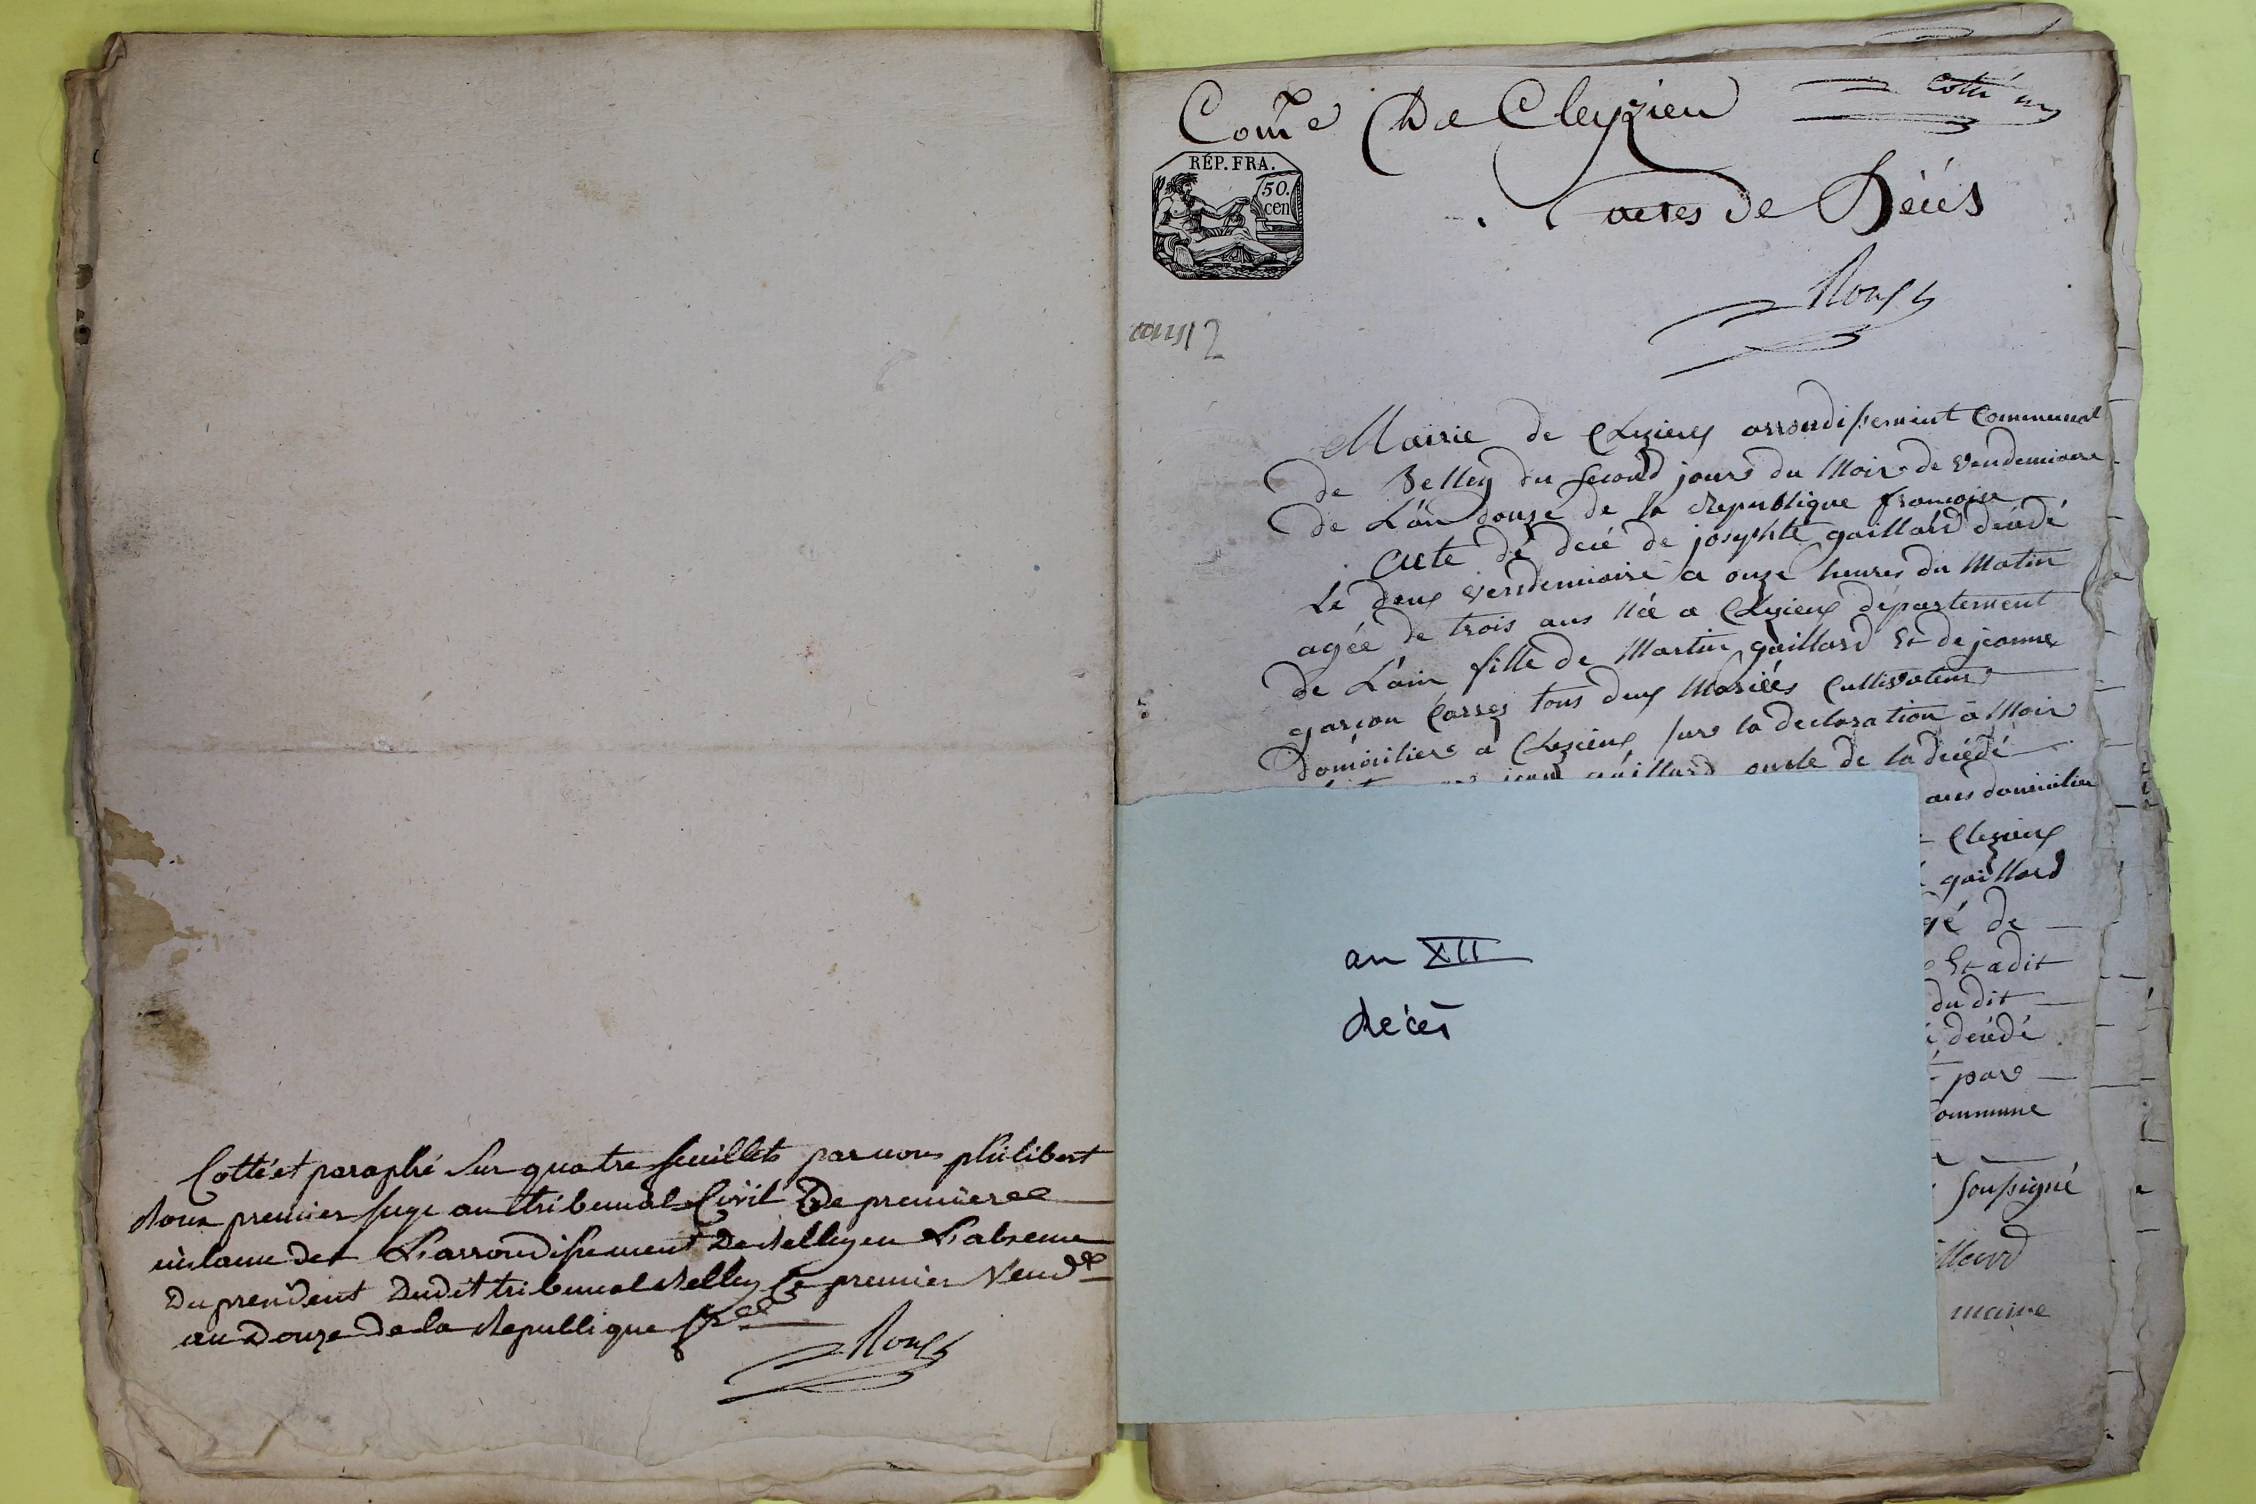 Cotté et paraphé sur quatre feuillets par nous philibert
Roux premier juge au tribunal Civil De premiere
instance de L'arrondissement De Belley en L'absence
Du president Dudit tribunal Belley le premier Vend.re
an Douze De la Republique fr.se
Roux
Com.e De Cleyzieu
cotté un
RÉP. FRA.
50.
cen
actes de Décés
Roux
an 12
Mairie de Clezieux arrondissement Communal
de Belley du second jour du Mois de vendemiaire
de L'an douze de la republique françoise
acte de decé de josephte gaillard décédé
le deux vendemiaire a onze heures du Matin
agée de trois ans née a Clezieux département
de L'ain fille de Martin gaillard Et de jeanne
garçon Carrez tous deux Mariéés Cultivateur
domicilier a Clezieux sur la declaration a Moir
jean gaillard oncle de la décédé
ans domicilier
Clezieux
gaillard
gé de
Et a dit
du dit
décédé
par
ommune
soussigné
illard
maire
an XII
décès